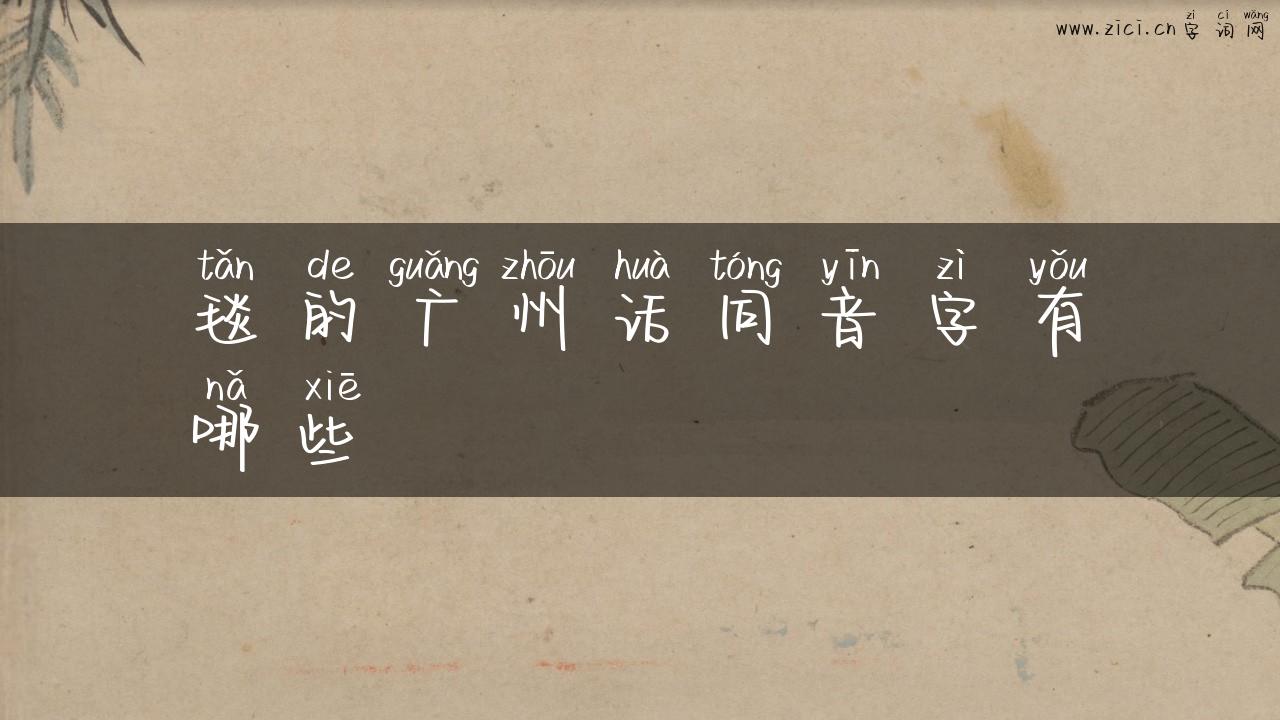 zì cí wǎng
www.zici.cn 字词网
tǎn de guǎng zhōu huà tóng yīn zì yǒu
毯的广州话同音字有
nǎ xiē
哪些